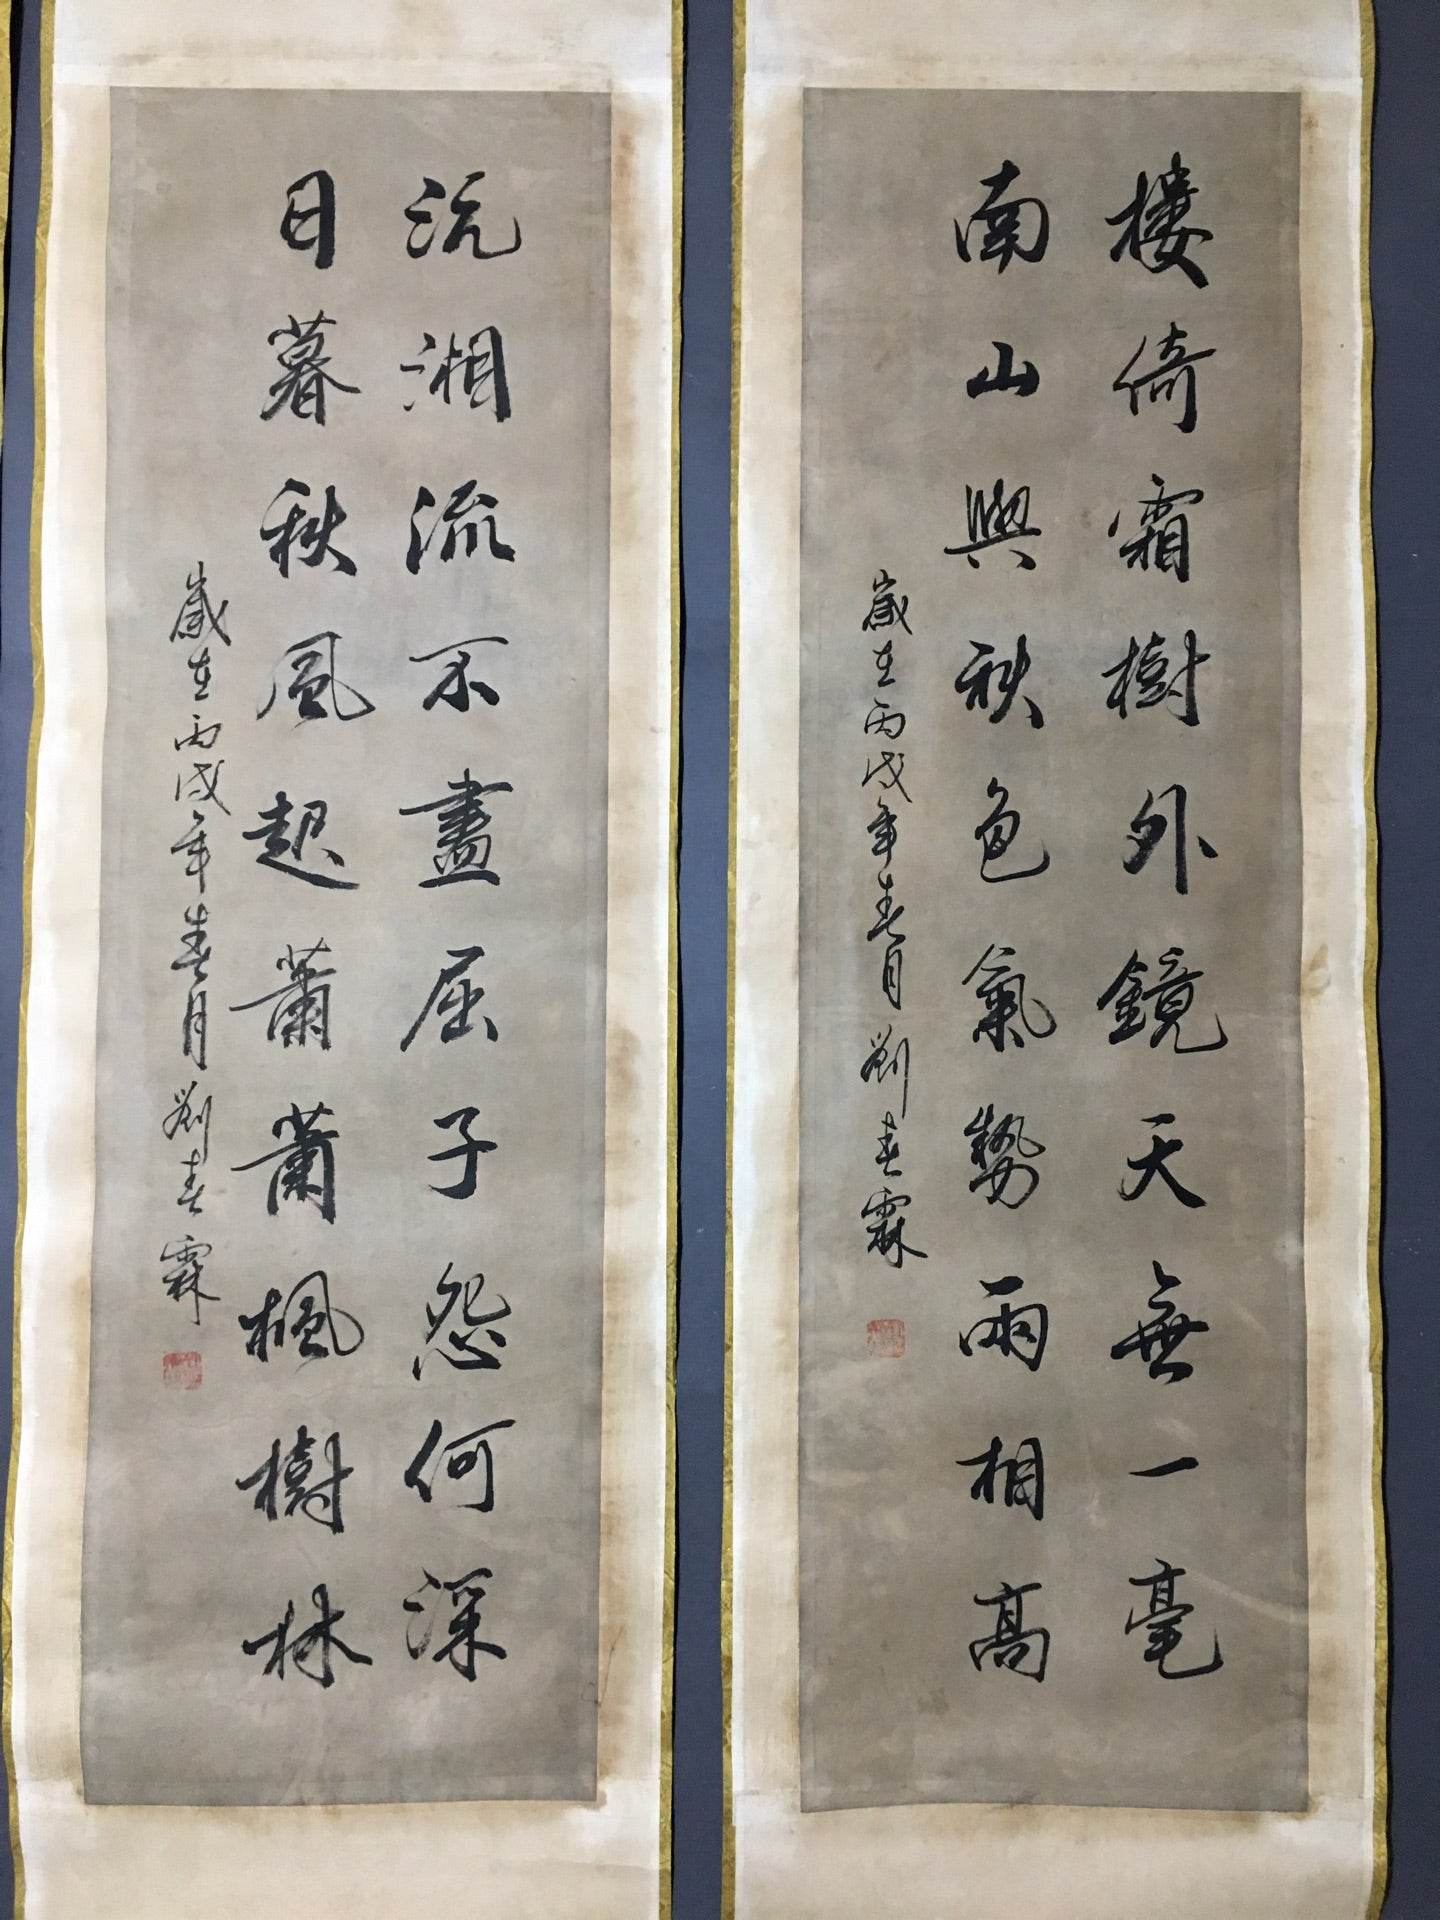 樓倚霜樹外鏡天無一毫
南山與秋色氣勢兩相高
歲在丙戌年春月劉春霖
沅湘流不盡屈子怨何深
日暮秋風起蕭蕭楓樹林
歲在丙戌年春月劉春霖